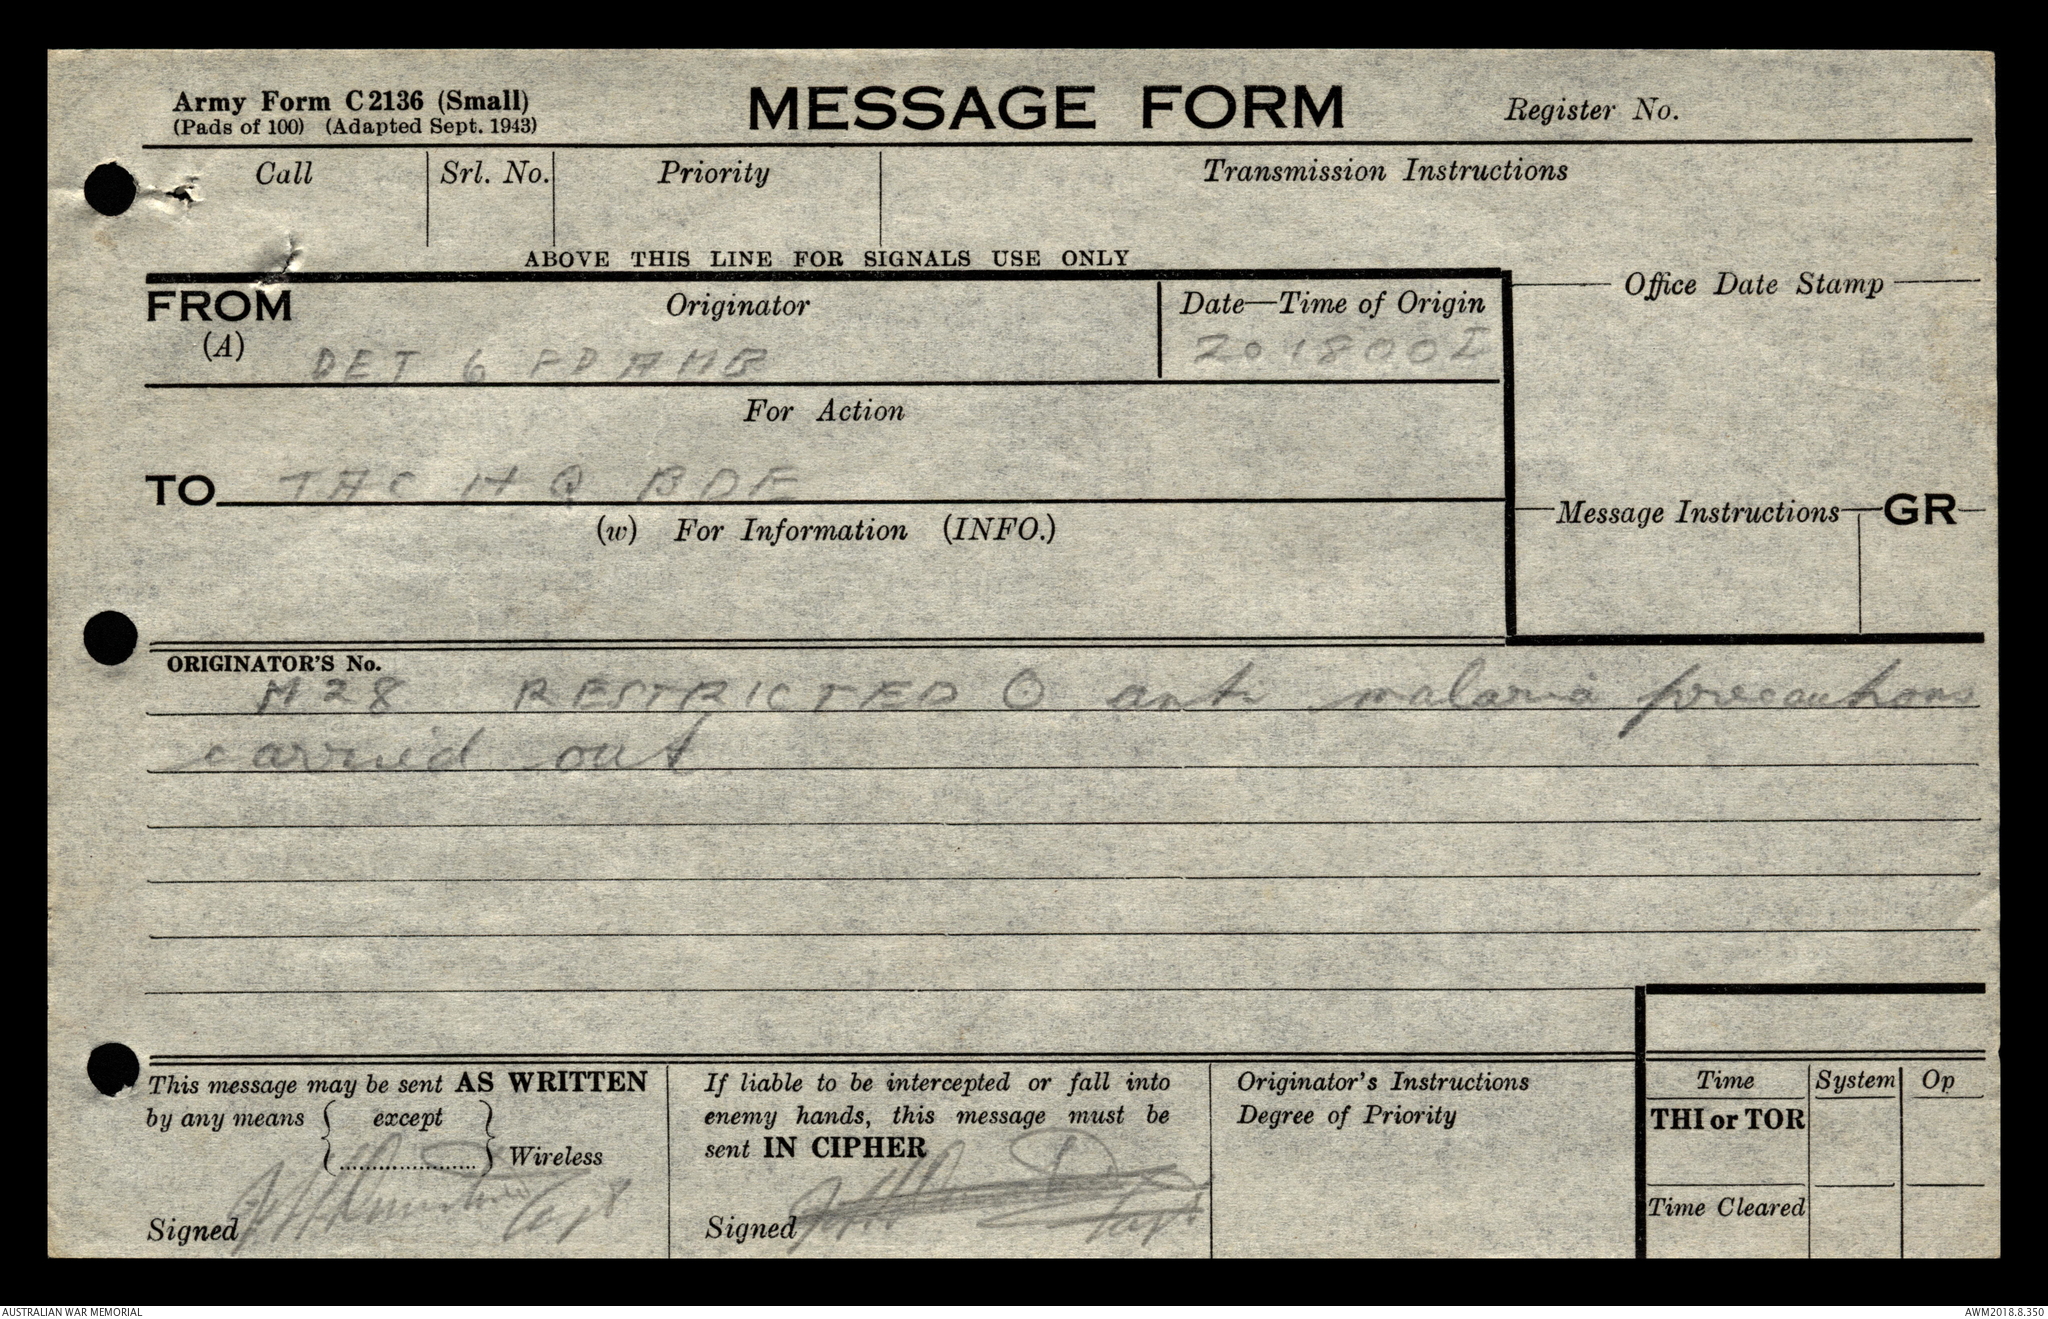 Army Form C2136 (Small)
(Pads of 100) (Adapted Sept. 1943)
MESSAGE FORM
Register No.
Call
Srl. No.
Priority
Transmission Instructions
ABOVE THIS LINE FOR SIGNALS USE ONLY
FROM
(A)
Originator
DET 6 FD AMB
Date—Time of Origin
201800I
Office Date Stamp
For Action
TO TAC HQ BDE
(w) For Information (INFO.)
Message Instructions
GR
ORIGINATOR'S No.
M28 RESTRICTED O anti malaria precautions
carried out
This message may be sent AS WRITTEN
by any means { except } Wireless
Signed Capt
If liable to be intercepted or fall into
enemy hands, this message must be
sent IN CIPHER
Signed Capt
Originator's Instructions
Degree of Priority
Time
System
Op
THI or TOR
Time Cleared
AUSTRALIAN WAR MEMORIAL
AWM2018.8.350